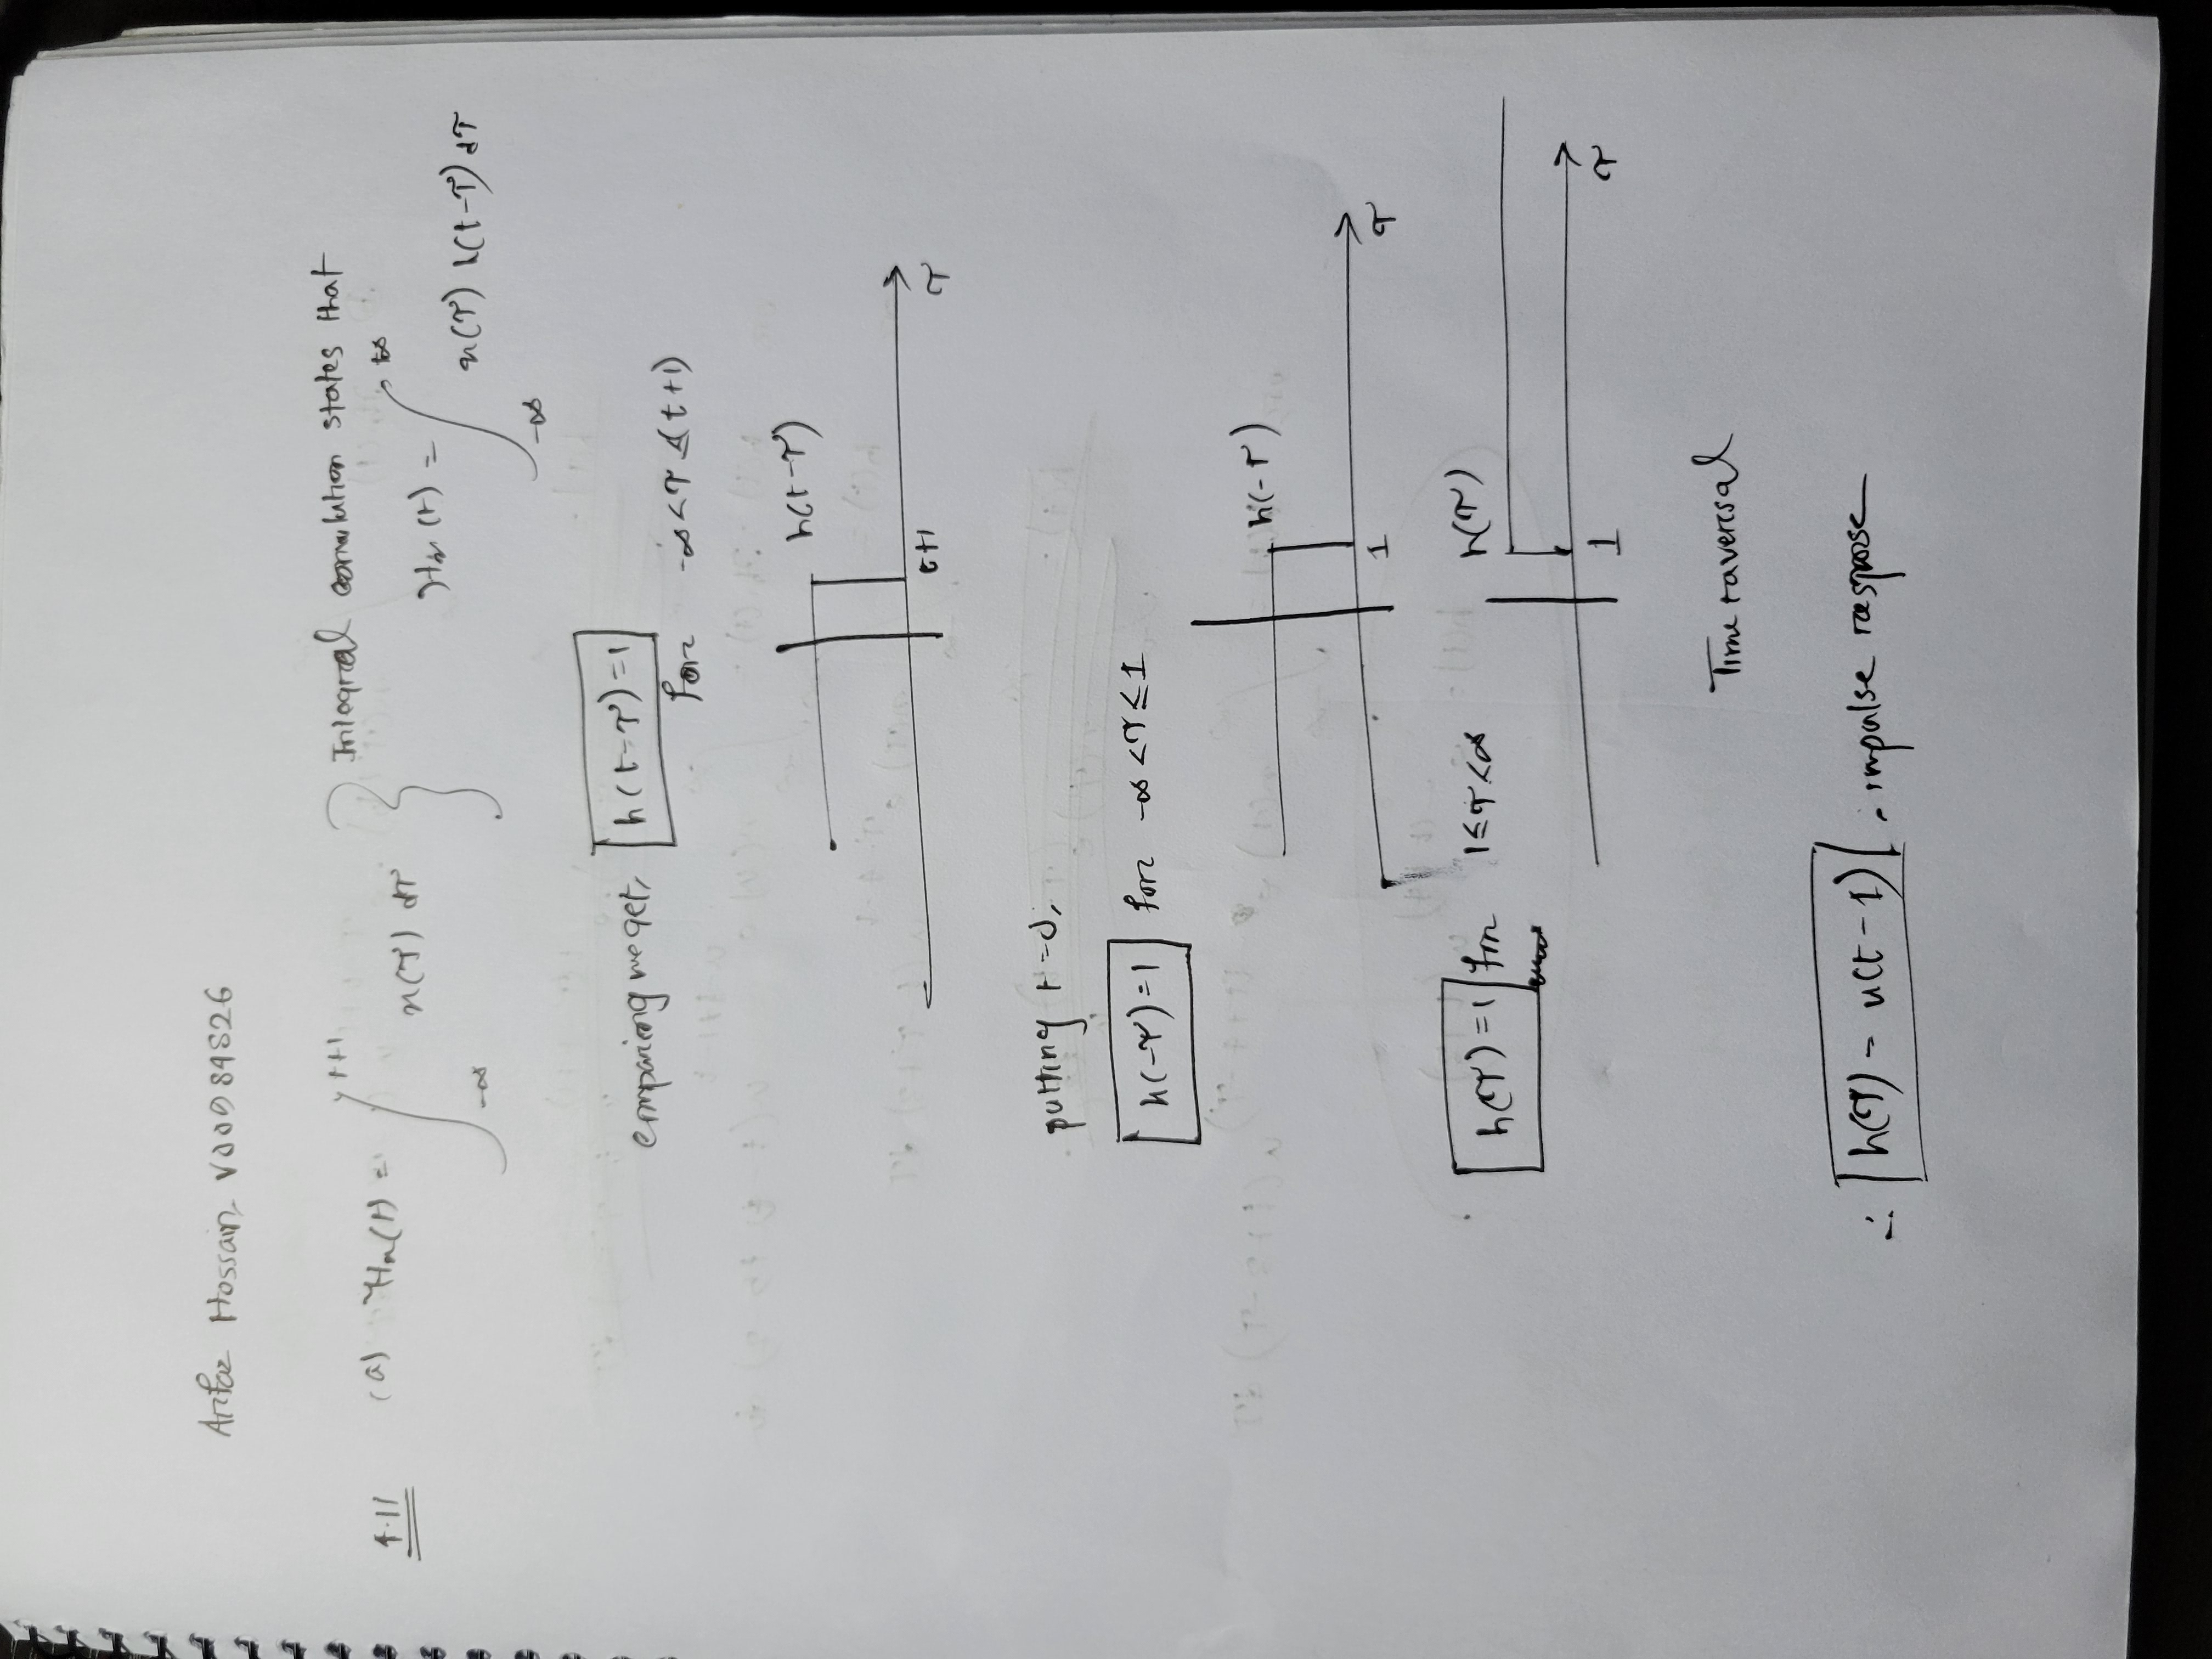 Arifaz Hossain, V00984826
4.11 (a) Hx(t) = ∫_{-∞}^{t+1} x(τ) dτ } Integral convolution states that
Hx(t) = ∫_{-∞}^{+∞} x(τ) h(t-τ) dτ
comparing we get, h(t-τ)=1
for -∞<τ≤(t+1)
h(t-τ)
t+1
τ
putting t=0,
h(-τ)=1 for -∞<τ≤1
h(-τ)
1
τ
h(τ)=1 for 1≤τ<∞
h(τ)
1
τ
Time raversal
∴ h(τ) = u(t-1) . impulse response